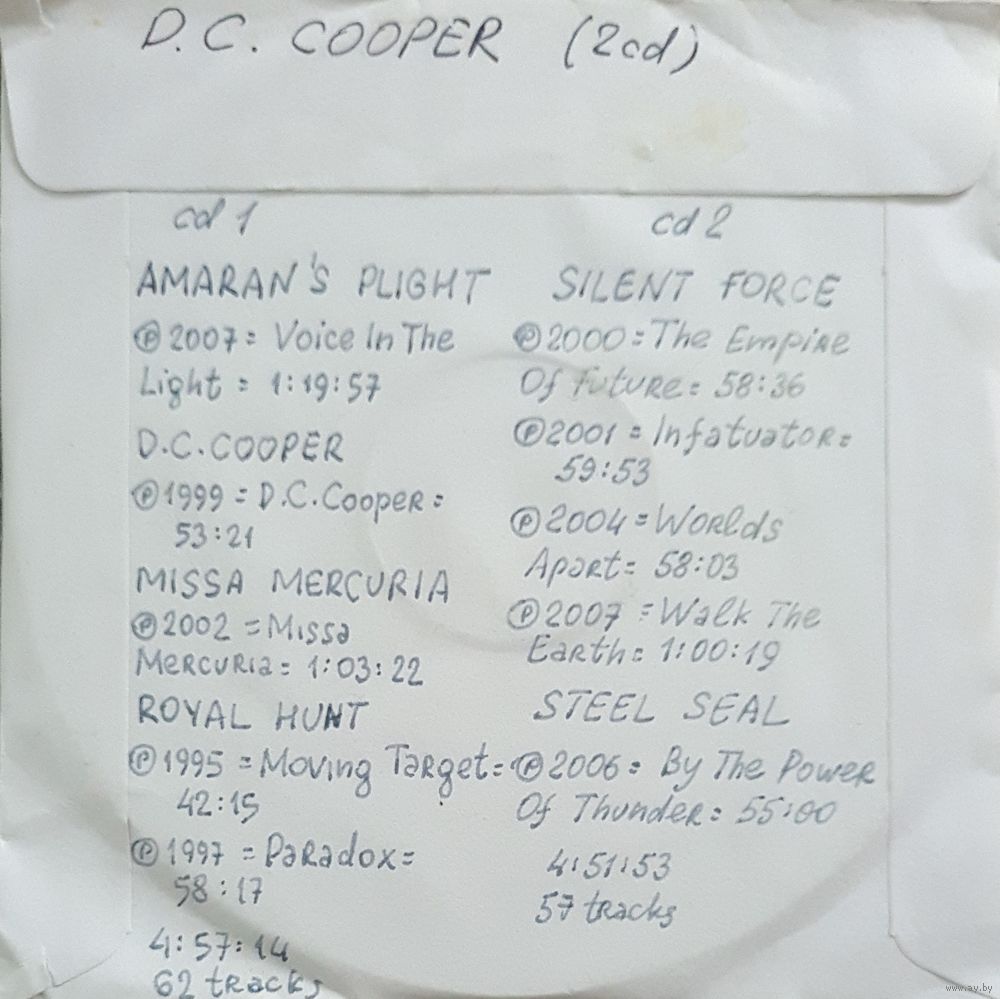 D.C. COOPER (2cd)
cd 1
AMARAN'S PLIGHT
℗ 2007 = Voice In The
Light = 1:19:57
D.C.COOPER
℗ 1999 = D.C.Cooper =
53:21
MISSA MERCURIA
℗ 2002 = Missa
Mercuria = 1:03:22
ROYAL HUNT
℗ 1995 = Moving Target =
42:15
℗ 1997 = Paradox =
58:17
4:57:14
62 tracks
cd 2
SILENT FORCE
℗ 2000 = The Empire
Of Future = 58:36
℗ 2001 = Infatuator =
59:53
℗ 2004 = Worlds
Apart = 58:03
℗ 2007 = Walk The
Earth = 1:00:19
STEEL SEAL
℗ 2006 = By The Power
Of Thunder = 55:00
4:51:53
57 tracks
www.av.by